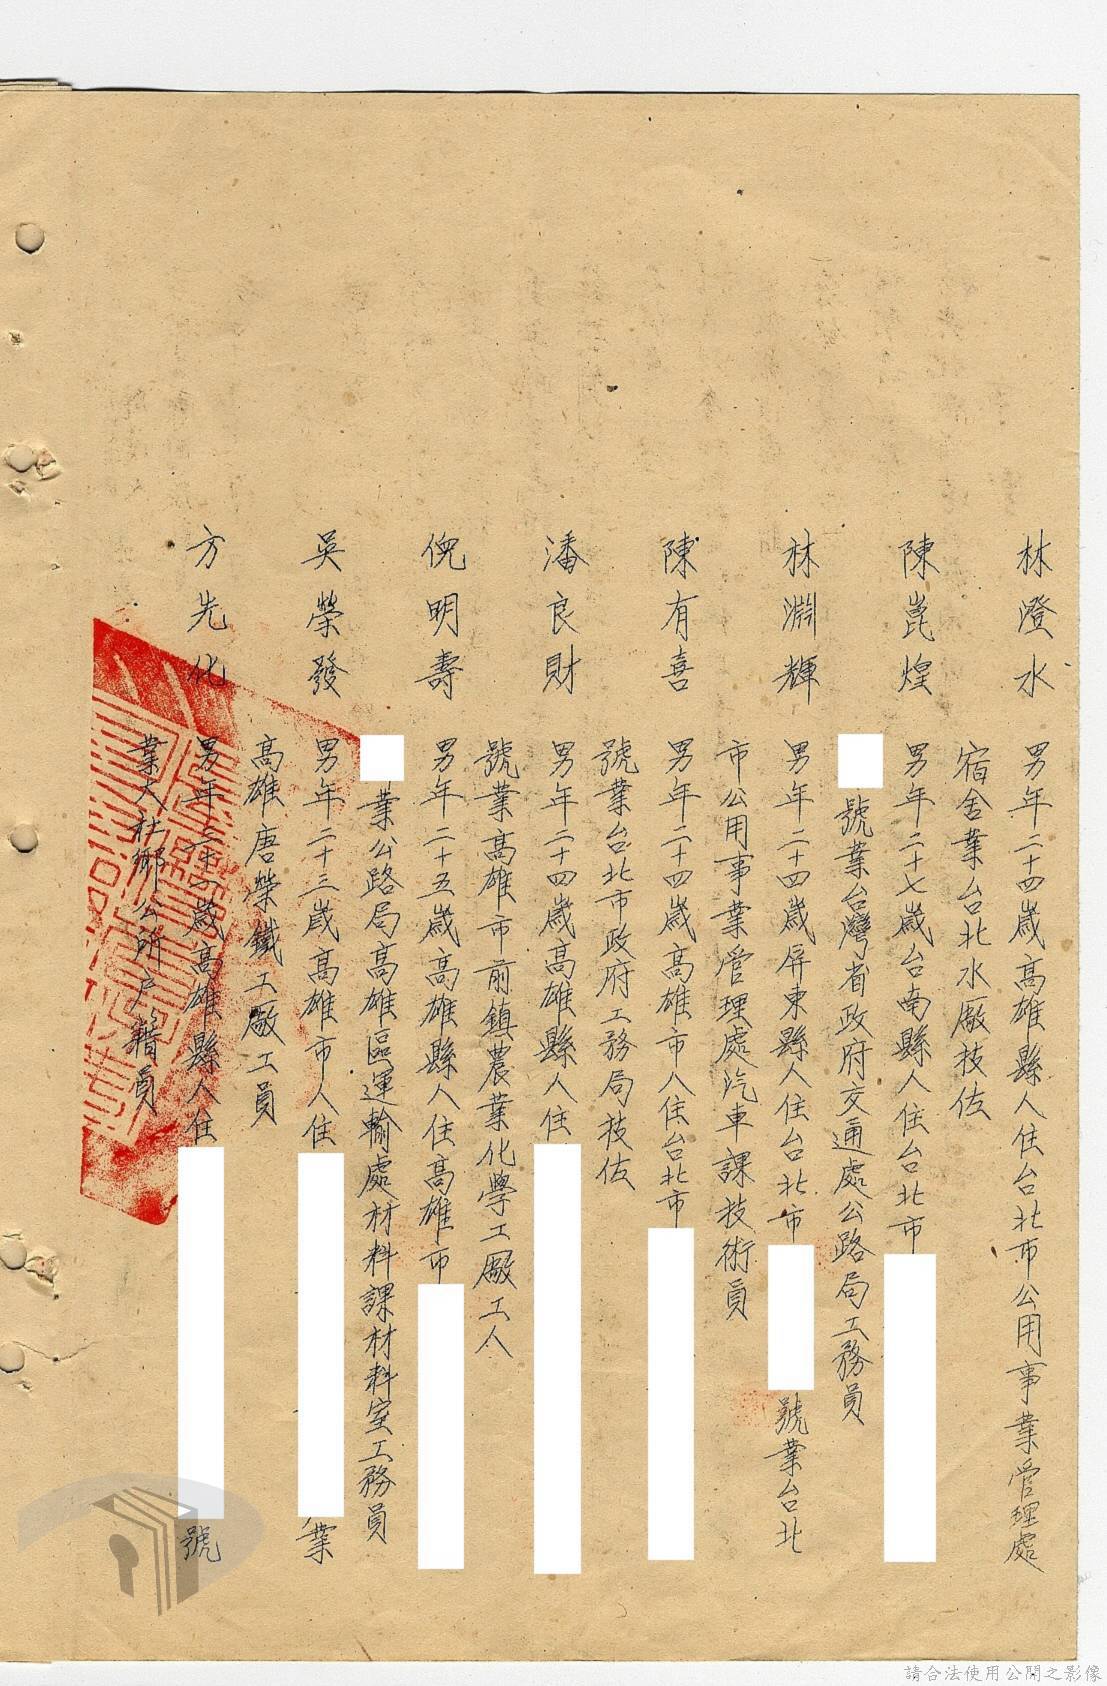 林澄水 男年二十四歲高雄縣人住台北市公用事業管理處
宿舍業台北水廠技佐
陳崑煌 男年二十七歲台南縣人住台北市
號業台灣省政府交通處公路局工務員
林淵輝 男年二十四歲屏東縣人住台北市
號業台北
市公用事業管理處汽車課技術員
陳有喜 男年二十四歲高雄市人住台北市
號業台北市政府工務局技佐
潘良財 男年二十四歲高雄縣人住
號業高雄市前鎮農業化學工廠工人
倪明壽 男年二十五歲高雄縣人住高雄市
業公路局高雄區運輸處材料課材料室工務員
吳榮發 男年二十三歲高雄市人住
業
高雄唐榮鐵工廠工員
方先化 男年三十 歲高雄縣人住
號
業大社鄉公所戶籍員
請合法使用公開之影像